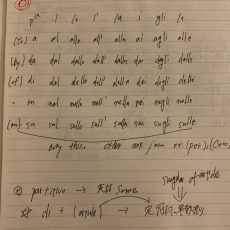 p^a il lo l' la i gli le
(to) a al allo all' alla ai agli alle
(by) da dal dallo dall' dalla dai dagli dalle
(of) di del dello dell' della dei degli delle
in nel nello nell' nella nei negli nelle
(on) su sul sullo sull' sulla sui sugli sulle
only this other not join ex: (per), (con)
singular of article
② partitivo → some
di + (article) →